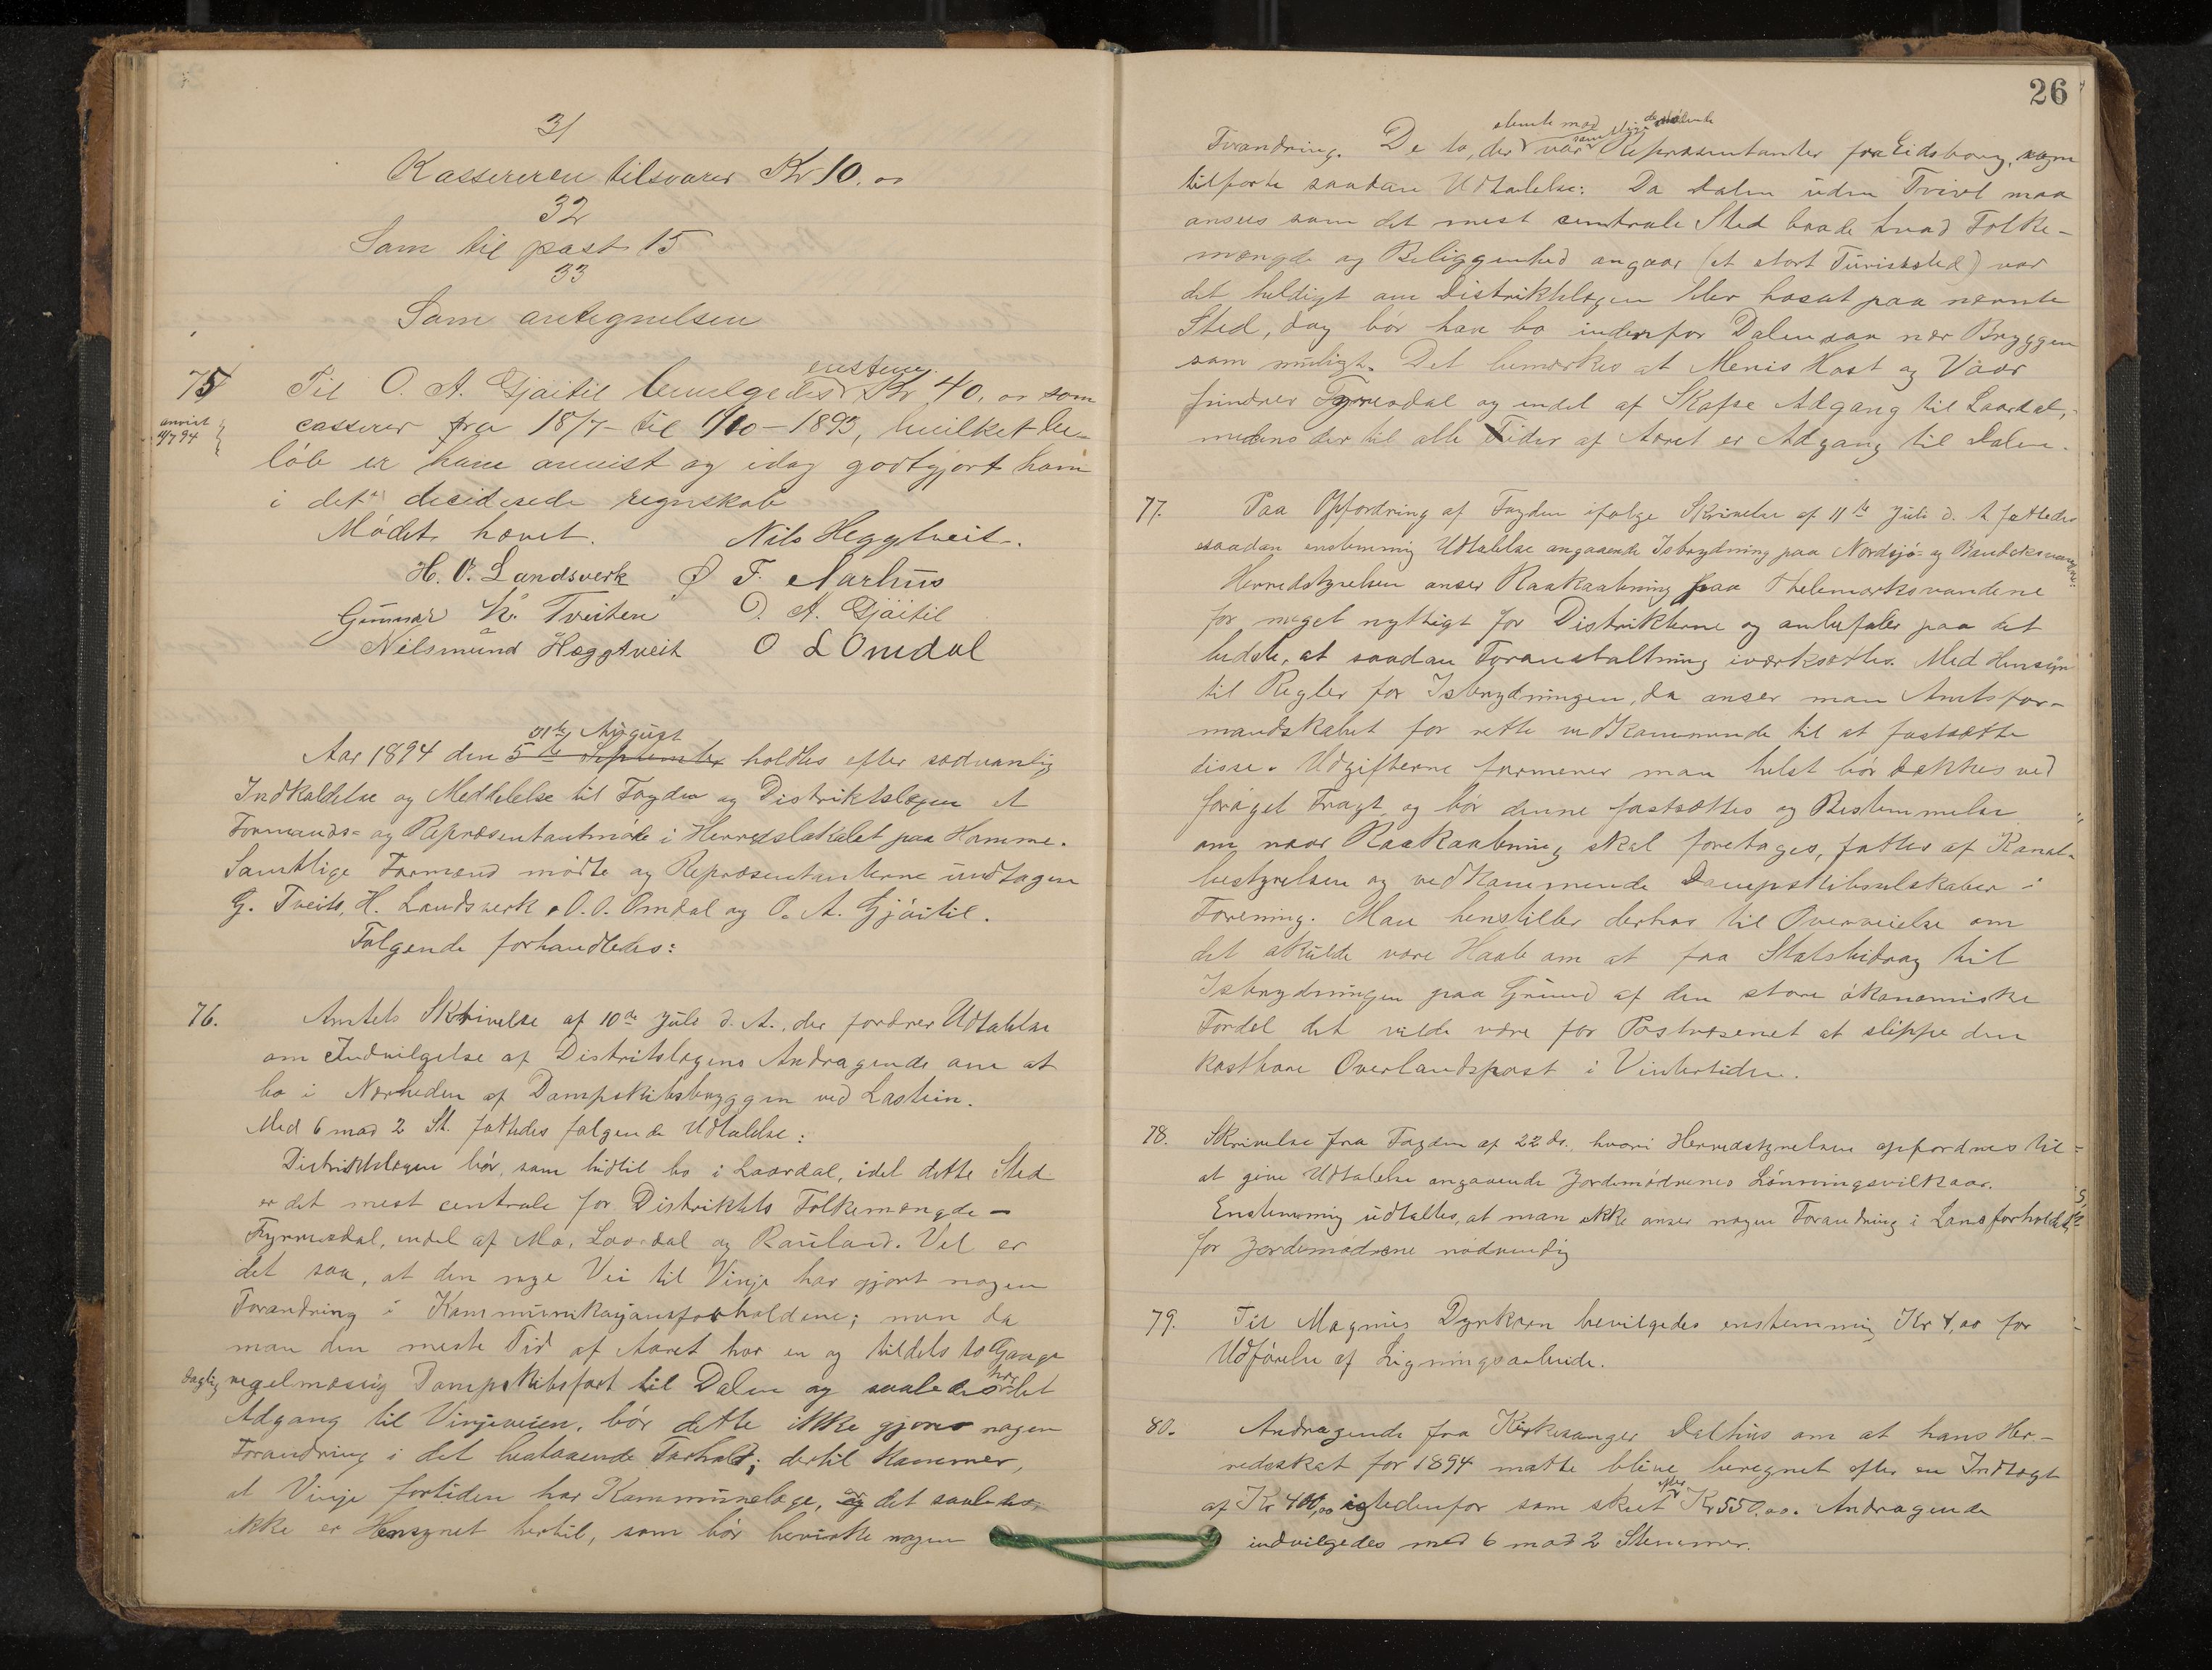 31
Kassereren tilsvarer Kr 10.00
32
Som til post 15
33
Som antegnelsen
75 Til O. A. Gjøitil bevilgedes enstem. Kr 40,00 som
anvist 11/7 94
casserer fra 18/7 til 1/10 - 1893, hvilket be-
løb er ham anvist og idag godtgjort ham
i det deciderede regnskab
Mödet hævet. Nils Heggtveit.
H. O. Landsverk Ø F. Aarhus
Gunnar K. Tveiten O. A. Gjøitil
Nilsmund Hæggtveit O L Omdal
31te August
Aar 1894 den 5te September holdtes efter sædvanlig
Indkaldelse og Meddelelse til Fogden og Distriktslægen et
Formands- og Repræsentantmøde i Herredslokalet paa Homme.
Samtlige Formænd mödte og Repræsentanterne undtagen
G. Tveito, H. Landsverk, O. O. Omdal og O. A. Gjöitil.
Følgende forhandledes:
76. Amtets Skrivelse af 10de Juli d. A., der fordrer Udtalelse
om Indvilgelse af Distritslægens Andragende om at
bo i Nærheden af Dampskibsbryggen ved Lastein.
Med 6 mod 2 St. fattedes følgende Udtalelse:
Distriktslægen bör, som hidtil bo i Laardal, idet dette Sted
er det mest centrale for Distriktets Folkemængde -
Fyrresdal, endel af Mo, Laardal og Rauland. Vel er
det saa, at den nye Vei til Vinje har gjort nogen
Forandring i Kommunikasjonsforholdene; men da
man den meste Tid af Aaret har en og tildels to Gange
daglig regelmæssig Dampskibsfart til Dalen og saaledes har let
Adgang til Vinjeveien, bör dette ikke gjöres nogen
Forandring i det bestaaende Forhold; dertil kommer,
at Vinje fortiden har Kommunelæge, og det saaledes
ikke er Hensynet hertil, som bör bevirke nogen
26
stemte mod samtlige de
Forandring. De to, der var Repræsentanter fra Eidsborg, som
tilførte saadan Udtalelse: Da Dalen uden Tvivl maa
ansees som det mest centrale Sted baade hvad Folke-
mængde og Beliggenhed angaar (et stort Turiststed) var
det heldigt om Distriktslægen blev bosat paa nævnte
Sted, dog bör han bo indenfor Dalen saa nær Bryggen
som muligt. Det bemærkes at Menis Höst og Vaar
hindrer Fyresdal og endel af Skafse Adgang til Laardal,
medens der til alle Tider af Aaret er Adgang til Dalen.
77. Paa Opfordring af Fogden ifølge Skrivelse af 11te Juli d. A. fattedes
saadan enstemmig Udtalelse angaaende Isbrydning paa Nordsjö- og Bandaksvandene:
Herredstyrelsen anser Raakaabning paa Thelemarksvandene
for meget nyttigt for Distrikterne og anbefaler paa det
bedste, at saadan Foranstaltning iværksættes. Med Hensyn
til Regler for Isbrydningen, da anser man Amtsfor-
mandskabet for rette vedkommende til at fastsætte
disse. Udgifterne formener man helst bör dækkes ved
foröget Fragt og bör denne fastsættes og Bestemmelse
om naar Raakaabning skal foretages, fattes af Kanal-
bestyrelsen og vedkommende Dampskibsselskaber i
Forening. Man henstiller derhos til Overveielse om
det skulde være Haab om at faa Statsbidrag til
Isbrydningen paa Grund af den store økonomiske
Fordel det vilde være for Postvæsenet at slippe den
kostbare Overlandspost i Vintertiden.
78. Skrivelse fra Fogden af 22 ds. hvori Herredstyrelsen opfordres til
at give Udtalelse angaaende Jordemödrenes Lönningsvilkaar.
Enstemmig udtaltes, at man ikke anser nogen Forandring i Lönsforholdet
for Jordemödrene nödvendig
79. Til Magnus Dyrkorn bevilgedes enstemmig Kr 4,00 for
Udförelse af Ligningsarbeide.
80. Andragende fra Kirkesanger Dalhus om at hans Her-
redsskat for 1894 maatte blive beregnet efter en Indtægt
af Kr 400,00 istedenfor som skeet efter Kr 550.00. Andragende
indvilgedes med 6 mod 2 Stemmer.